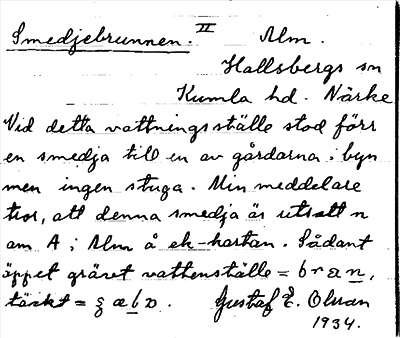 Smedjebrunnen. II Alm.
Hallsbergs sn
Kumla hd. Närke
Vid detta vattningsställe stod förr
en smedja till en av gårdarna i byn
men ingen stuga. Min meddelare
tror, att denna smedja är utsatt n
om A i Alm å ek-kartan. Sådant
öppet grävet vattenställe =
täckt =
Gustaf E. Olsson
1934.